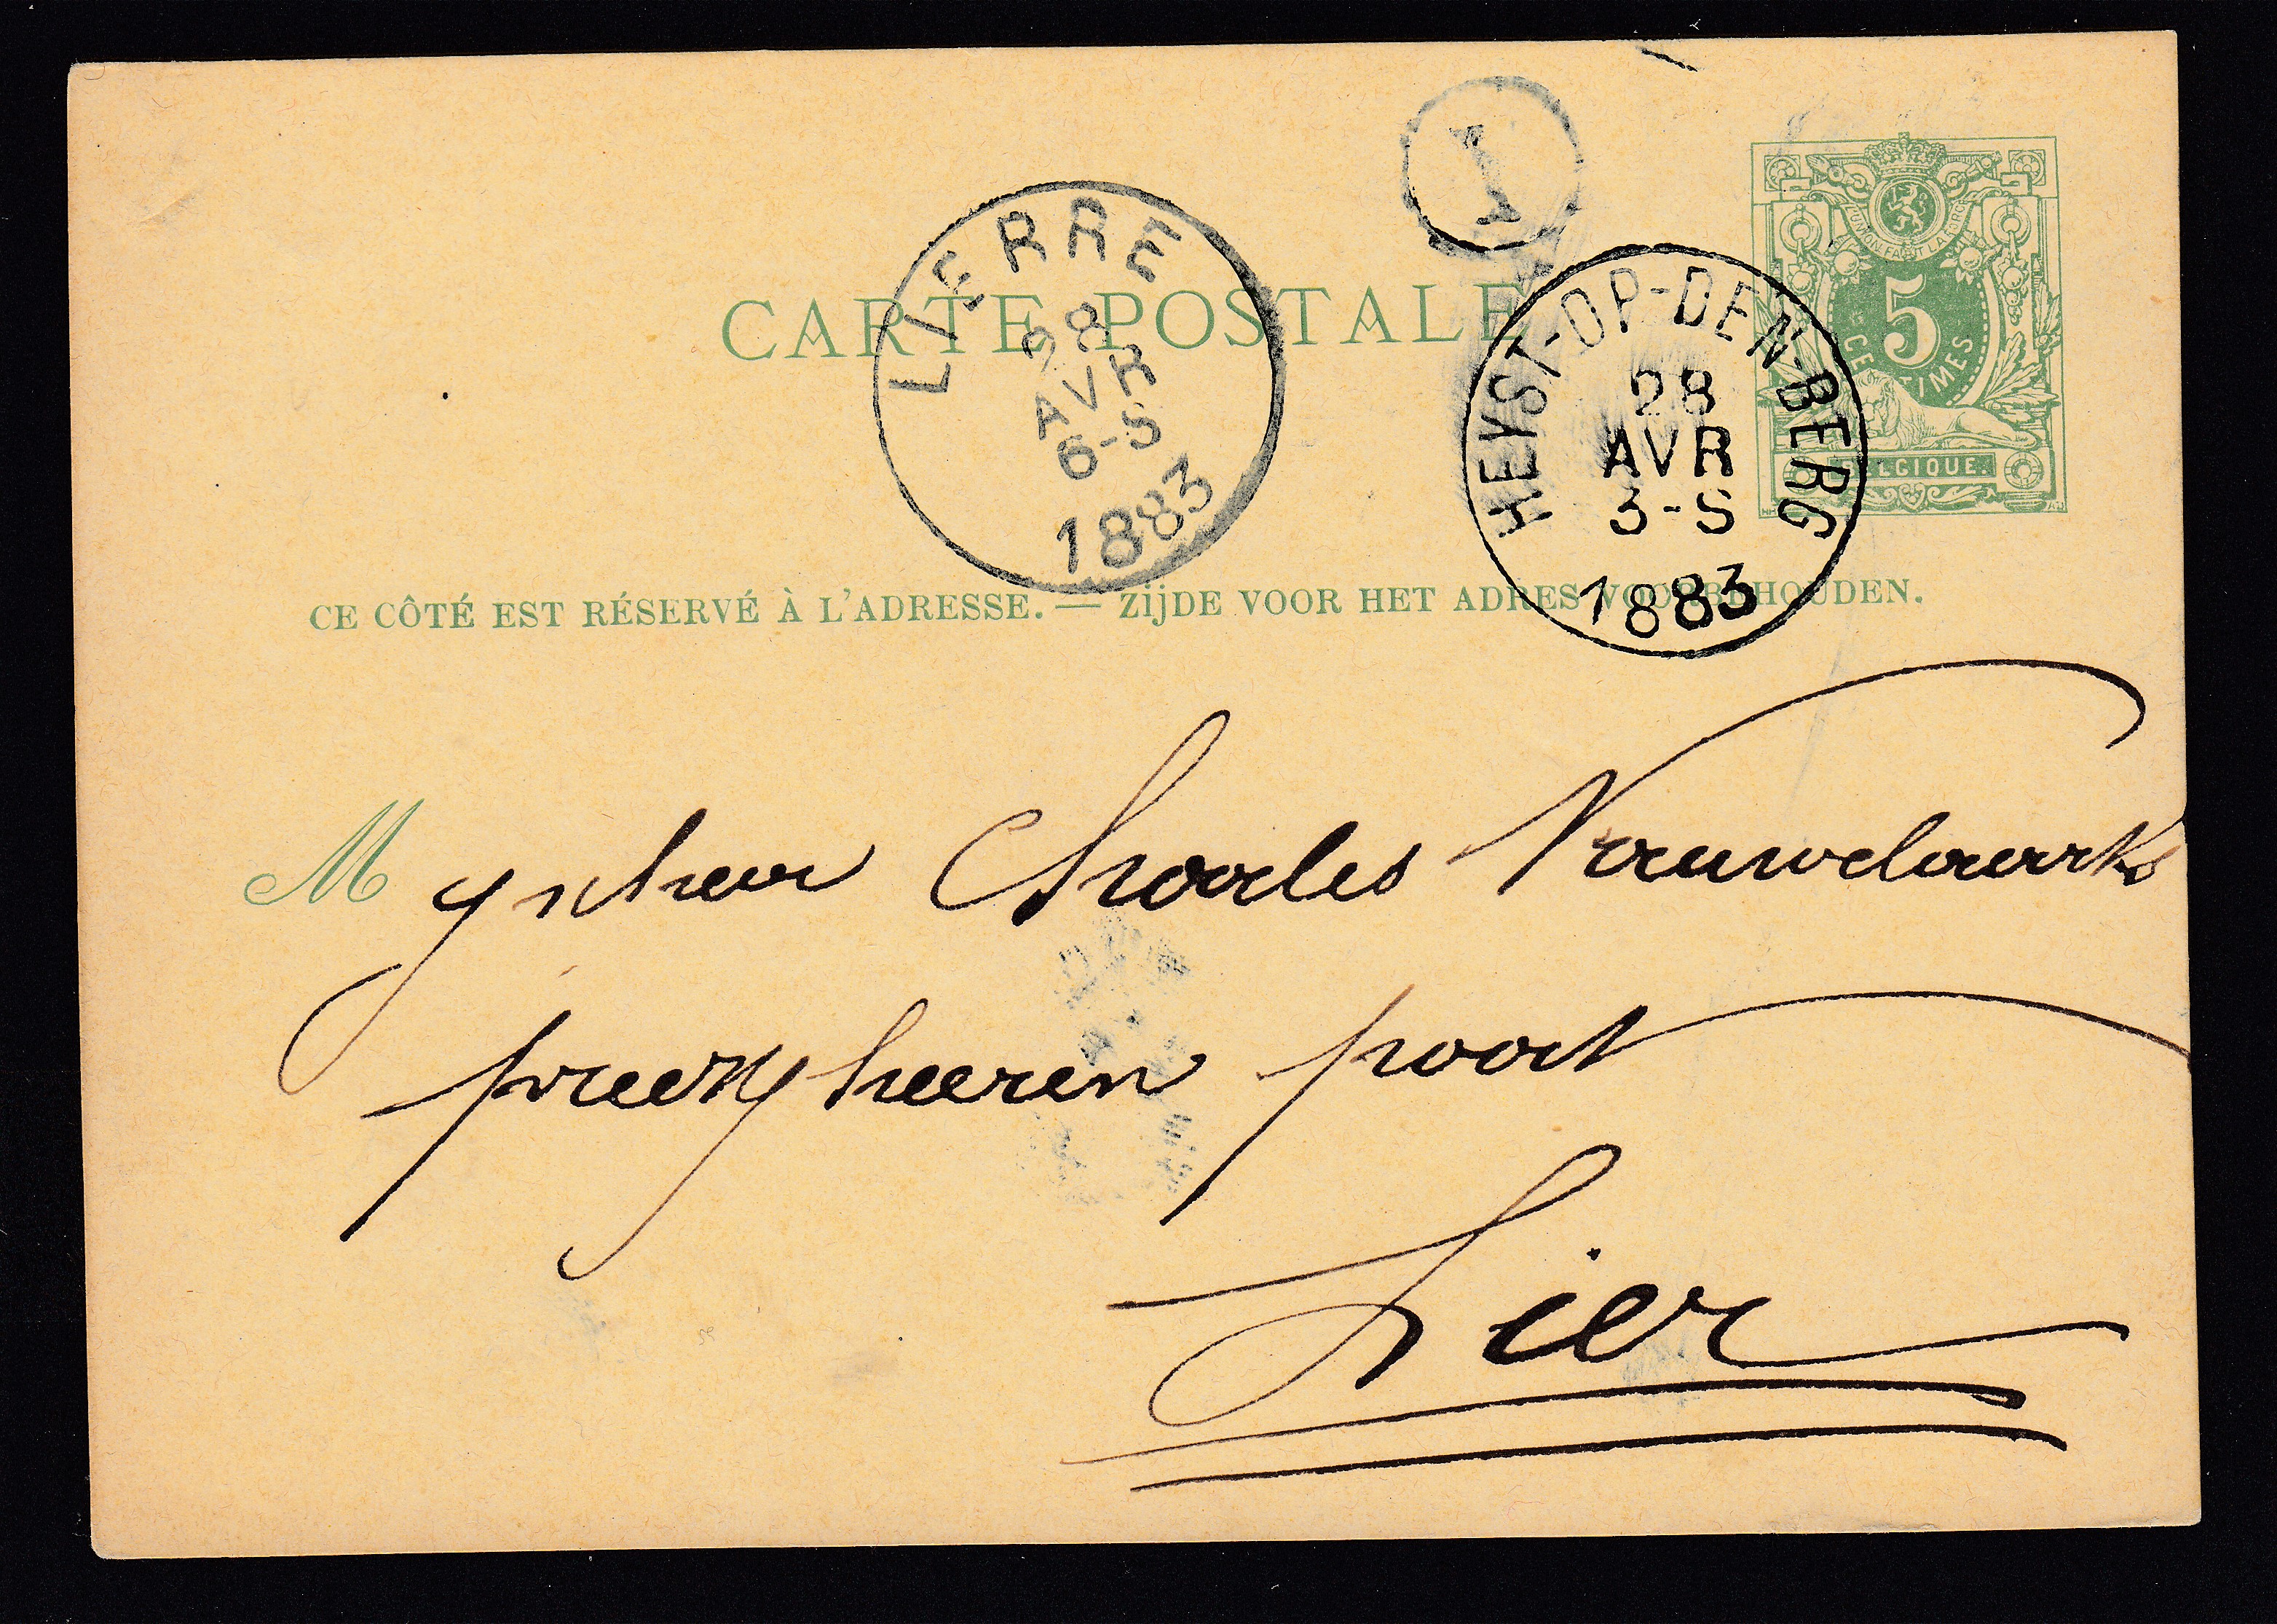 LIERRE
28
AVR
6-S
1883
HEYST-OP-DEN-BERG
28
AVR
3-S
1883
L'UNION FAIT LA FORCE
5
CENTIMES
BELGIQUE.
CARTE POSTALE
CE CÔTÉ EST RÉSERVÉ À L'ADRESSE. — ZijDE VOOR HET ADRES VOORBEHOUDEN.
Mynheer Charles Vauwelaerts
heeren poort
Lier